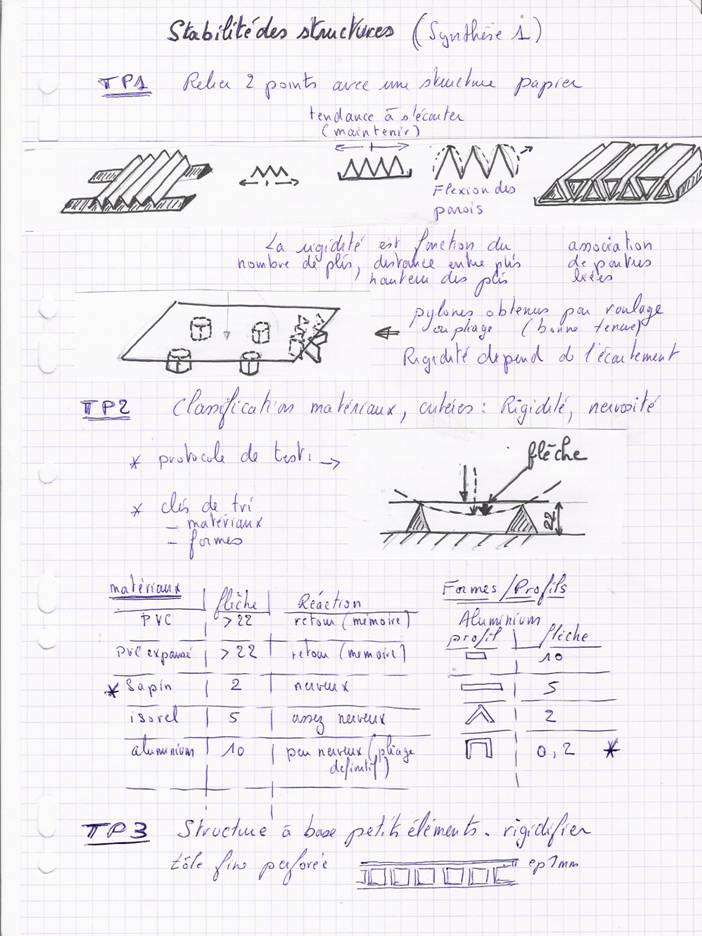 Stabilité des structures (Synthèse 1)
TP1 Relier 2 points avec une structure papier
tendance à s'écarter
(maintenir)
Flexion des
parois
La rigidité est fonction du
nombre de plis, distance entre plis
hauteur des plis
association
de poutres
liées
pylones obtenus par roulage
ou pliage (bonne tenue)
Rigidité dépend de l'écartement
TP2 Classification matériaux, critères : Rigidité, nervosité
* protocole de test : →
flèche
22
* clés de tri
- matériaux
- formes
matériaux flèche Réaction
PVC >22 retour (mémoire)
PVC expansé >22 retour (mémoire)
* Sapin 2 nerveux
isorel 5 assez nerveux
aluminium 10 peu nerveux (pliage
définitif)
Formes/Profils
Aluminium
profil flèche
10
5
2
0,2 *
TP3 Structure à base petits éléments. rigidifier
tôle fine perforée
ep 1mm